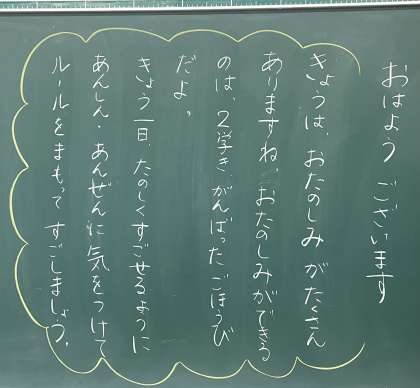 おはよう ございます
きょうは、おたのしみ がたくさん
ありますね。おたのしみができる
のは、2学き、がんばった ごほうび
だよ。
きょう一日、たのしくすごせるように
あんしん・あんぜんに気をつけて
ルールをまもって すごしましょう。